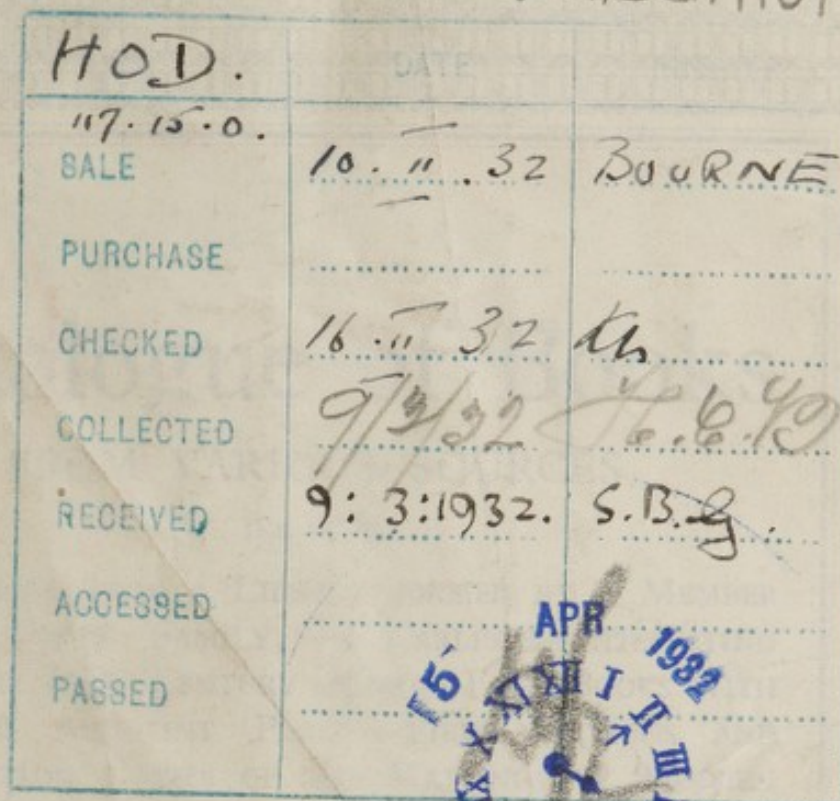 HOD. DATE
117.15.0.
SALE 10.II.32 BOURNE
PURCHASE
CHECKED 16.II 32
COLLECTED 9/3/32
RECEIVED 9:3:1932. S.B.G.
ACCESSED
APR
5 1932
PASSED
XI XII I II III
X
IX